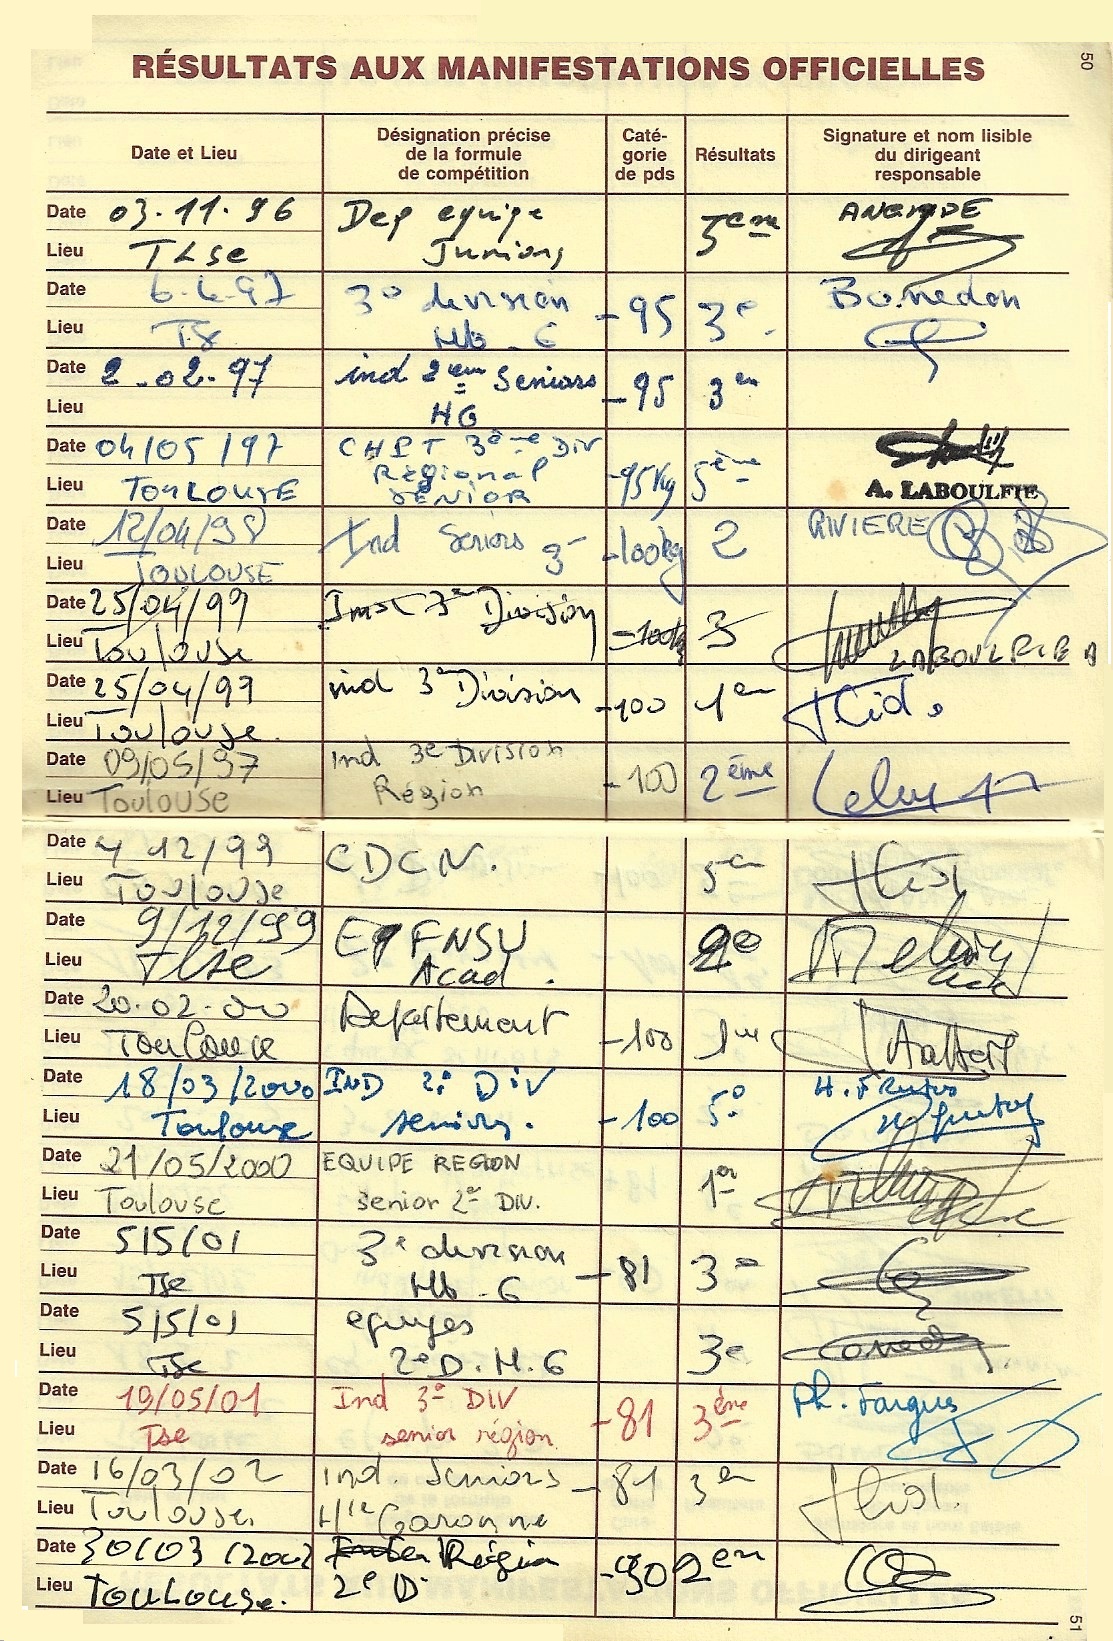 50
RÉSULTATS AUX MANIFESTATIONS OFFICIELLES
Date et Lieu
Désignation précise
de la formule
de compétition
Caté-
gorie
de pds
Résultats
Signature et nom lisible
du dirigeant
responsable
Date 03.11.96 Dep equipe 5eme
Lieu TLse Juniors
Date 6.4.97 3e division -95 3e Bonnedon
Lieu Tse Hb - G
Date 2.02.97 ind 2em Seniors -95 3em
Lieu HG
Date 04/05/97 CHPT 3ème DIV -95Kg 5ème
Lieu TOULOUSE Régional
SENIOR
A. LABOULFIE
Date 12/04/98 Ind Seniors 3e -100kg 2 RIVIERE
Lieu TOULOUSE
Date 25/04/99 3e Division -100k 3
Lieu Toulouse LABOULFIE A
Date 25/04/99 ind 3e Division -100 1er
Lieu Toulouse
Date 09/05/97 Ind 3e Division -100 2ème
Lieu Toulouse Région
Date 4 12/99 CDCN. 5em
Lieu Toulouse
Date 9/12/99 FNSU 2e
Lieu Tlse Acad.
Date 20.02.00 Département -100 1er
Lieu Toulouse
Date 18/03/2000 IND 2e DIV -100 5e
Lieu Toulouse seniors.
Date 21/05/2000 EQUIPE REGION 1er
Lieu Toulouse senior 2e DIV.
Date 5/5/01 3e division -81 3e
Lieu Tse Hb - G
Date 5/5/01 equipes 3e
Lieu Tse 2e D. H. G
Date 19/05/01 Ind 3e DIV -81 3ème Ph. Fargues
Lieu Tse senior région
Date 16/03/02 Ind. Seniors -81 3em
Lieu Toulouse Hte Garonne
Date 30/03/2002 Région -90 2em
Lieu Toulouse. 2e D.
51